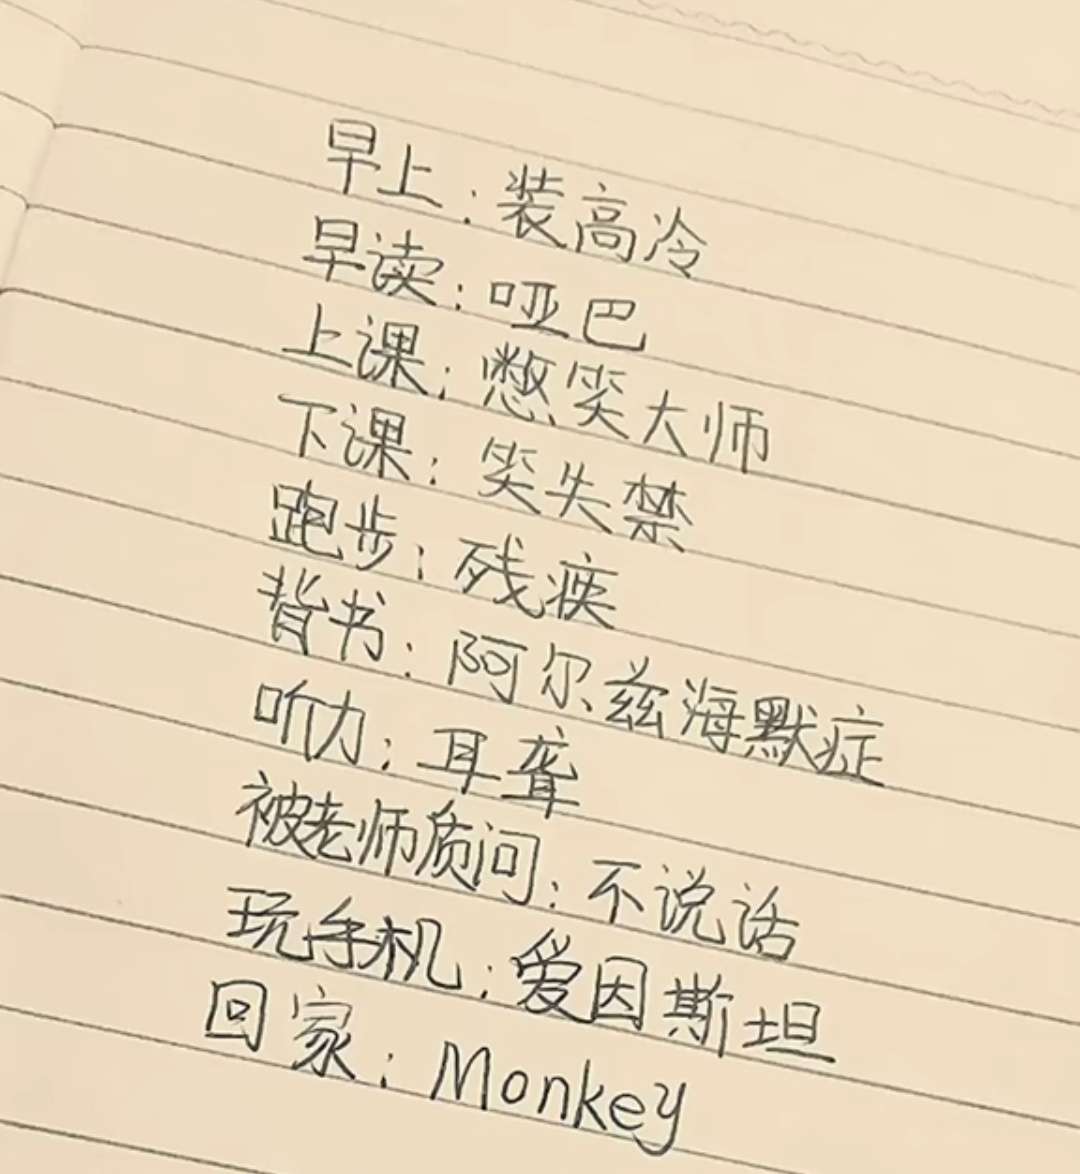 早上：装高冷
早读：哑巴
上课：憋笑大师
下课：笑失禁
跑步：残疾
背书：阿尔兹海默症
听力：耳聋
被老师质问：不说话
玩手机：爱因斯坦
回家：Monkey